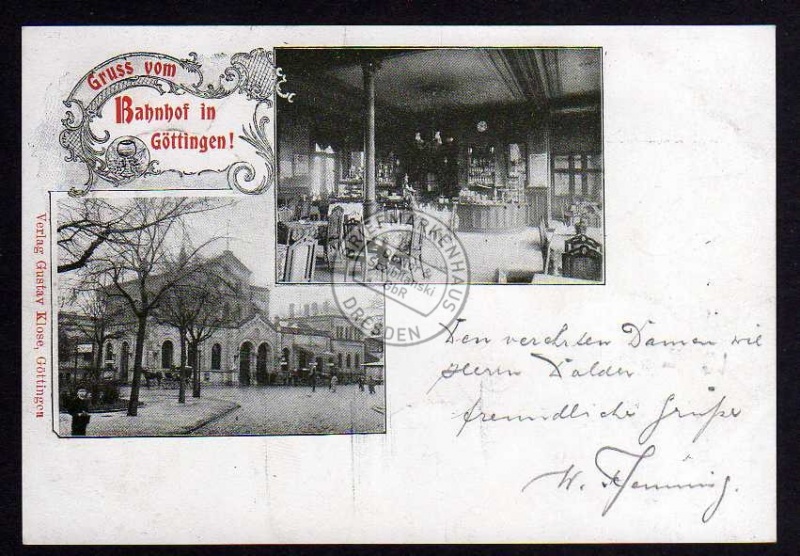 Gruss vom
Bahnhof in
Göttingen!
Verlag Gustav Klose, Göttingen
BRIEFMARKENHAUS
DRESDEN
GbR
Den verehrten Damen wie
Herrn
freundliche Grüße
W. Henning.